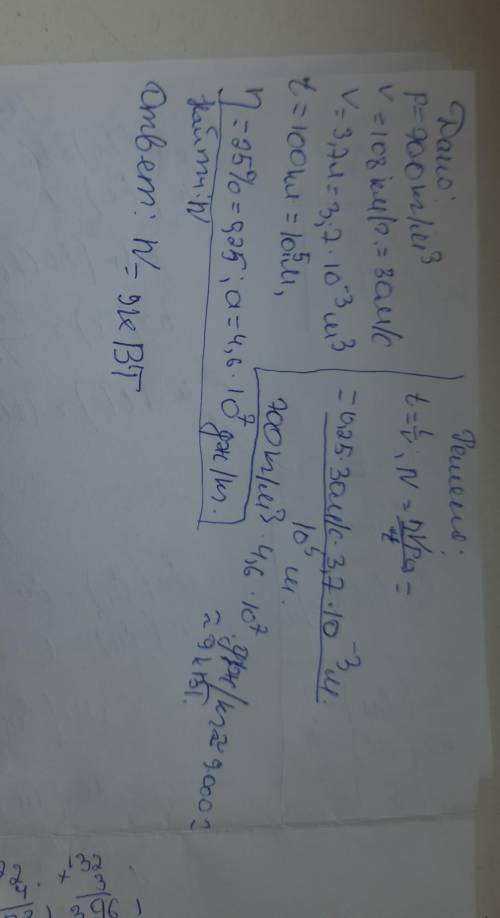 Дано:
p=900 т/м³
v=108 км/ч.=30м/с
V=3,7л=3,7·10⁻³ м³
t=100км=10⁵м,
η=25%=0,25; а=4,6·10⁷ дж/кг.
Найти: N
Решение:
t=L/V; N=ηVρq/t=
=0,25·30м/с·3,7·10⁻³ м.
10⁵ м.
900 т/м³·4,6·10⁷ Дж/кг≈9000
≈9кВт.
Ответ: N=9кВт